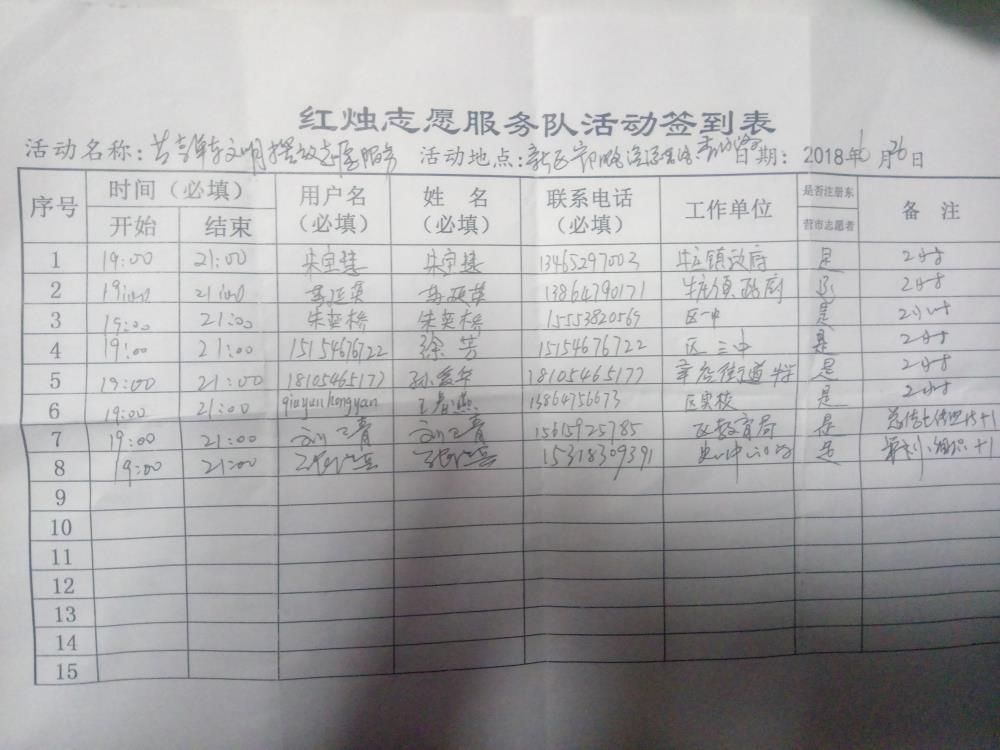 红烛志愿服务队活动签到表
活动名称: 文明摆放志愿服务 活动地点: 日期: 2018年6月26日
序号 时间（必填） 用户名（必填） 姓 名（必填） 联系电话（必填） 工作单位 是否注册东营市志愿者 备 注
开始 结束
1 19:00 21:00 朱宝慧 朱宝慧 13465297003 牛庄镇政府 是 2小时
2 19:00 21:00 13864790171 牛庄镇政府 2小时
3 19:00 21:00 朱奕桥 朱奕桥 15553820569 区一中 是 2小时
4 19:00 21:00 15154676722 徐芳 15154676722 区三中 是 2小时
5 19:00 21:00 18105465177 18105465177 街道 是 2小时
6 19:00 21:00 qiuyunhongyan 王春燕 13864756673 区实校 是 2小时
7 19:00 21:00 15615925785 区教育局 是 +1
8 19:00 21:00 15318309391 是 +1
9
10
11
12
13
14
15